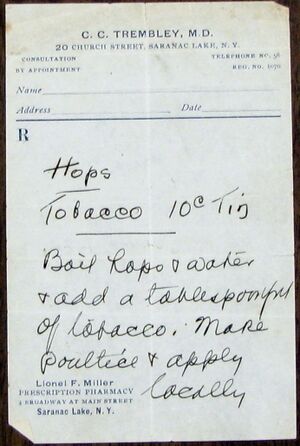 C. C. TREMBLEY, M.D.
20 CHURCH STREET, SARANAC LAKE, N. Y.
CONSULTATION
BY APPOINTMENT
TELEPHONE NO. 58
REG. NO. 1070
Name
Address Date
R
Hops
Tobacco 10c Tin
Boil hops & water
& add a tablespoonful
of tobacco. Make
poultice & apply
locally
Lionel F. Miller
PRESCRIPTION PHARMACY
4 BROADWAY AT MAIN STREET
Saranac Lake, N. Y.